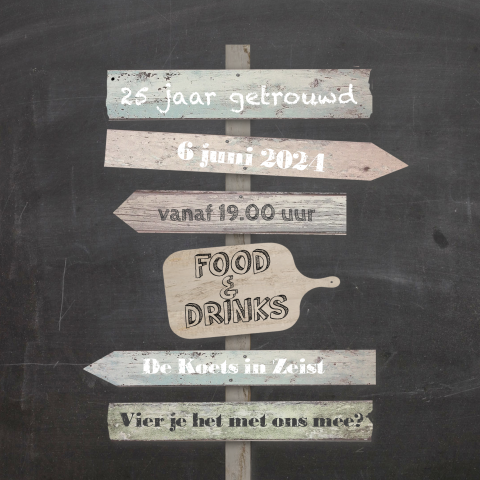 25 jaar getrouwd
6 juni 2024
vanaf 19.00 uur
FOOD
&
DRINKS
De Koets in Zeist
Vier je het met ons mee?